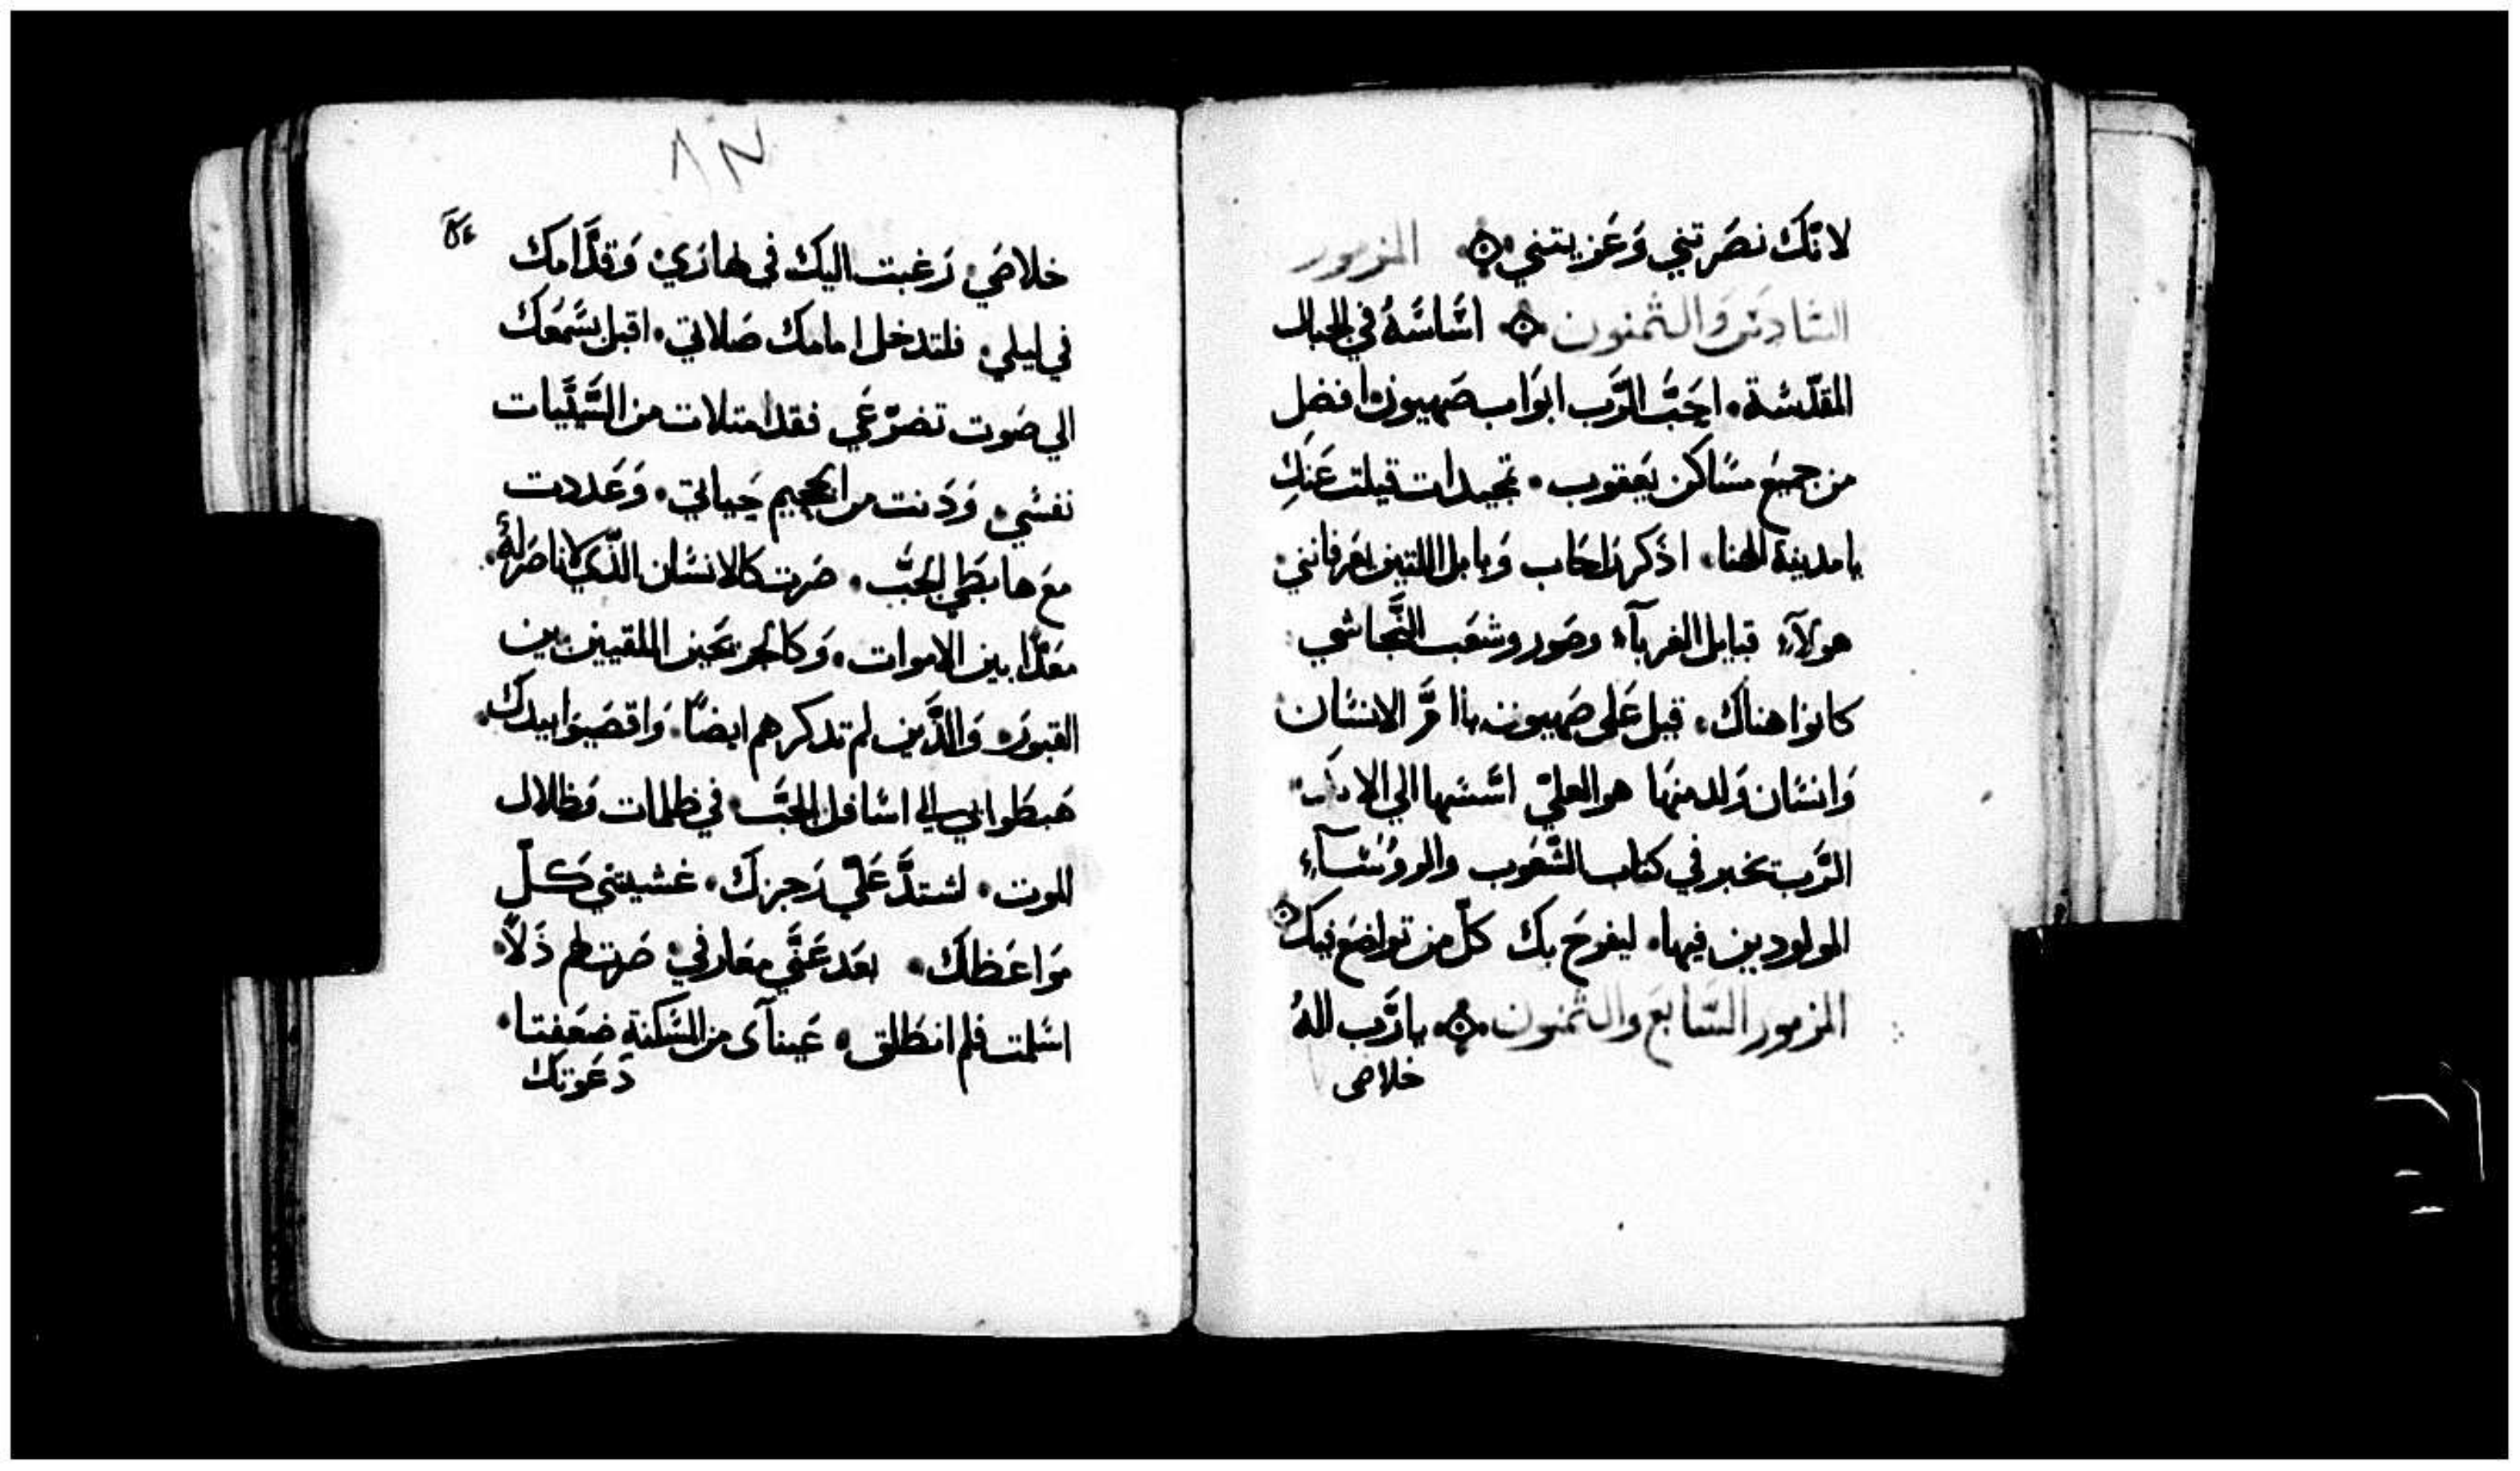 لانّك نصَرتني وَعَزيتني المزمور
السَّادسَ وَالثمنون اسَّاسَهُ في الجبال
المقدّسَة. احَبَّ الرَّب ابوَاب صَهيون افضل
من جميعَ مسَاكن يَعَقوب. تمجيدات قيلت عَنكِ
يا مدينة الهنا. اذكر رَاحَاب وَبابل اللتين تعَرفانني
هولآء قبايل الغربآء وصَور وشعَب النَّجاشي
كانوا هناك. قيل عَلى صَهيون يا امَّ الانسَان
وَانسَان وَلد منهَا هو العليّ اسَّسَها الي الابد
الرَّب تخبر في كتاب الشَّعَوب والروُسَآء
المولودين فيها. ليفرحَ بك كلّ من تواضَعَ فيك
المزمور السَّابعَ والثمنون يا رَّب اللهُ
خلاصى
خلاصَي رَغبت اليك في نهارَي وَقدَّامك
في ليلي فلتدخل امامك صَلاتي. اقبل بسَّمعَك
الي صَوت تضرّعَي فقد امتلات من السَّيّيَات
نفسَي وَدَنت من الجحيم حَياتي. وَعَددت
معَ هابطَي الجبَّ. صَرت كالانسَان الذّي لا ناصَر لهُ
معَدًّا بين الاموات. وَكالمجروحَين الملقيين بين
القبورَ وَالذَّين لم تدكرهم ايضَا. وَاقصَيوَا بيدك
هَبطَوا بي الي اسَافل الجبَّ في ظلمات وَظلال
الموت. اشتدَّ عَليّ رَجزك. غشيتني كلّ
موَاعَظك. بعَد عَنَّي معَارفي صَرت لهم ذَلاًّ
اسَلمت فلم انطَلق عَينآى من المسَكنة ضعَفتا
دَعَوتك